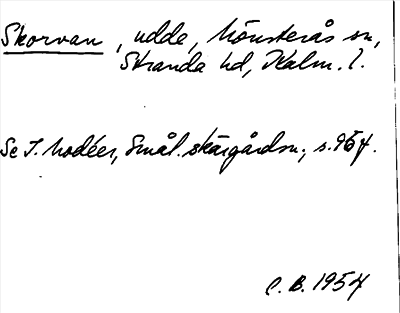 Skorvan, udde, Mönsterås sn,
Stranda hd, Kalm. l.
Se I. Modéer, Smål. skärgårdsn., s. 95 f.
C. B. 1954